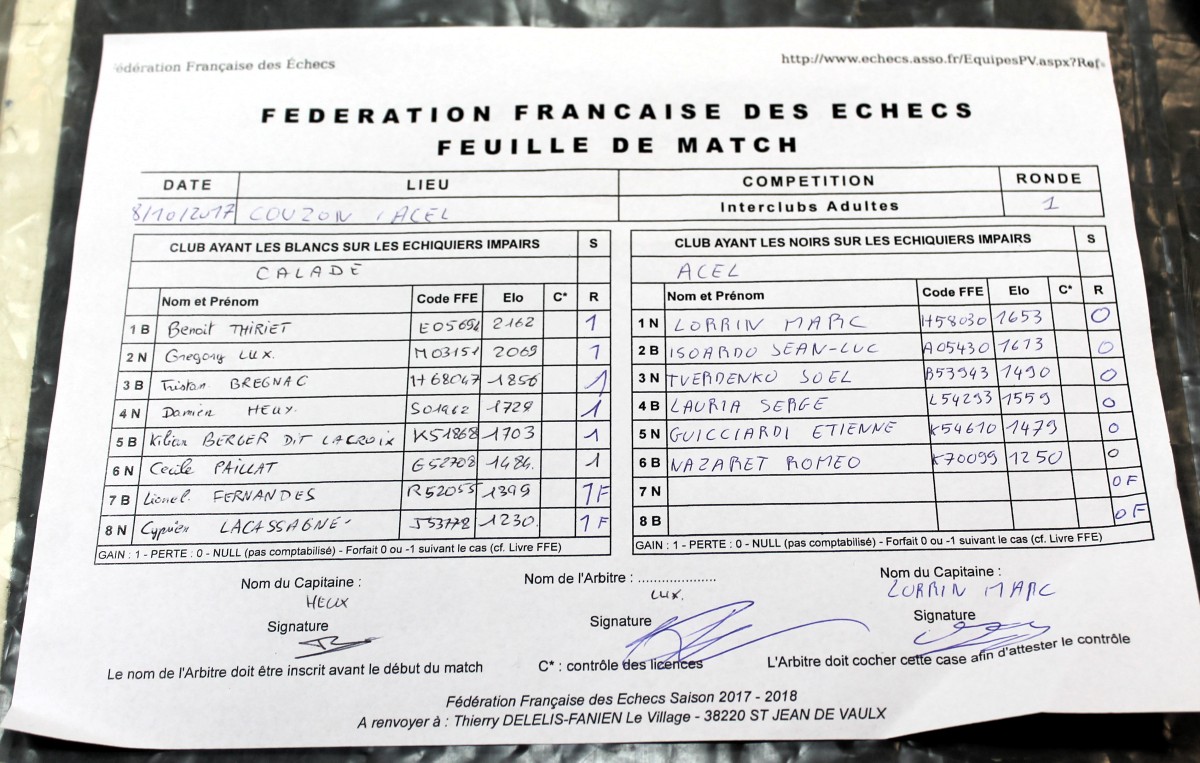 Fédération Française des Échecs
http://www.echecs.asso.fr/EquipesPV.aspx?Ref
FEDERATION FRANCAISE DES ECHECS
FEUILLE DE MATCH
DATE LIEU COMPETITION RONDE
8/10/2017 COUZON /ACEL Interclubs Adultes 1
CLUB AYANT LES BLANCS SUR LES ECHIQUIERS IMPAIRS S
CALADE
Nom et Prénom Code FFE Elo C* R
1 B Benoit THIRIET E05694 2162 1
2 N Gregory LUX. M03151 2069 1
3 B Tristan BREGNAC H68047 1856 1
4 N Damien HEUX. S01962 1729 1
5 B Kilian BERGER DIT LACROIX K51868 1703 1
6 N Cecile PAILLAT G52708 1484. 1
7 B Lionel FERNANDES R52055 1399 1F
8 N Cyprien LACASSAGNE J53778 1230. 1F
GAIN : 1 - PERTE : 0 - NULL (pas comptabilisé) - Forfait 0 ou -1 suivant le cas (cf. Livre FFE)
CLUB AYANT LES NOIRS SUR LES ECHIQUIERS IMPAIRS S
ACEL
Nom et Prénom Code FFE Elo C* R
1 N LORRIN MARC H58030 1653 0
2 B ISOARDO JEAN-LUC A05430 1613 0
3 N TVERDENKO SOEL B53943 1490 0
4 B LAURIA SERGE L54293 1559 0
5 N GUICCIARDI ETIENNE K54610 1479 0
6 B NAZARET ROMEO K70099 1250 0
7 N 0F
8 B 0F
GAIN : 1 - PERTE : 0 - NULL (pas comptabilisé) - Forfait 0 ou -1 suivant le cas (cf. Livre FFE)
Nom du Capitaine : Nom de l'Arbitre : .................... Nom du Capitaine :
HEUX LUX. LORRIN MARC
Signature Signature Signature
Le nom de l'Arbitre doit être inscrit avant le début du match C* : contrôle des licences L'Arbitre doit cocher cette case afin d'attester le contrôle
Fédération Française des Echecs Saison 2017 - 2018
A renvoyer à : Thierry DELELIS-FANIEN Le Village - 38220 ST JEAN DE VAULX